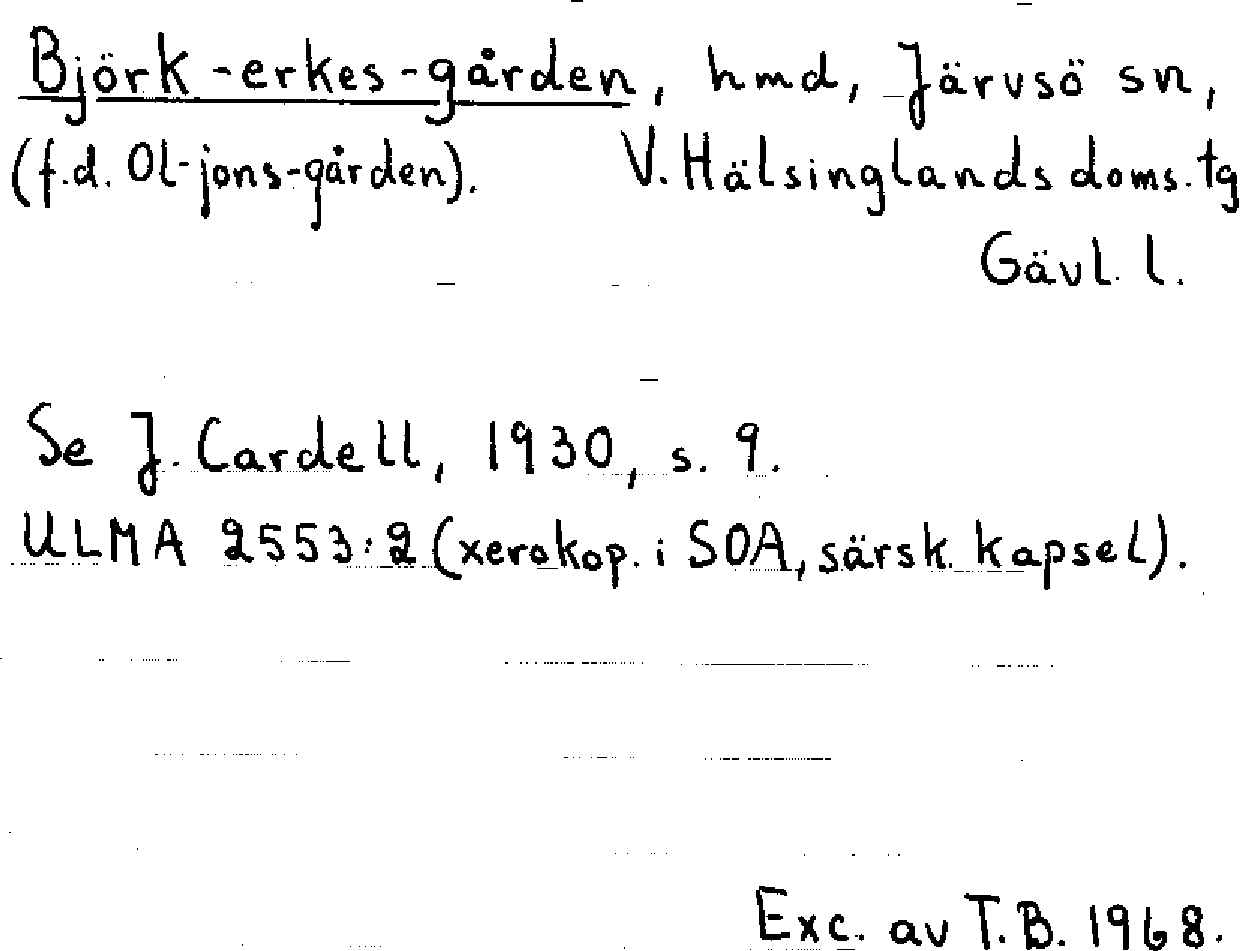 Björk-erkes-gården, hmd, Järvsö sn,
(f.d. Ol-jons-gården). V. Hälsinglands doms. tg
Gävl. l.
Se J. Cardell, 1930, s. 9.
ULMA 2553:2 (xerokop. i SOA, särsk. kapsel).
Exc. av T.B. 1968.